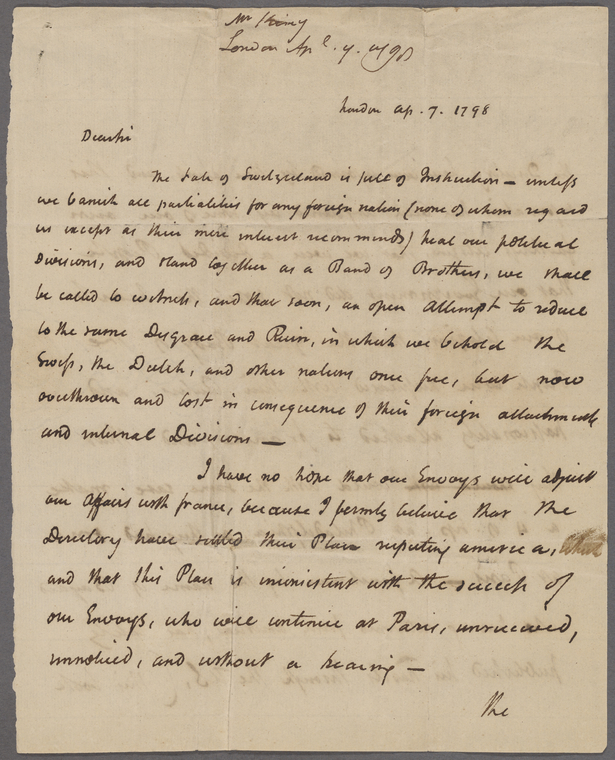 Mr King
London Apl. 7. 1798
London ap. 7. 1798
Dear sir
The fate of Switzerland is full of Instruction — unless
we banish all partialities for any foreign nation (none of whom regard
us except as their mere interest recommends) heal our political
Divisions, and stand together as a Band of Brothers, we shall
be called to witness, and that soon, an open attempt to reduce
to the same Disgrace and Ruin, in which we behold the
Swiss, the Dutch, and other nations once free, but now
overthrown and lost in consequence of their foreign attachments
and internal Divisions —
I have no hope that our Envoys will adjust
our Affairs with france, because I firmly believe that the
Directory have settled their Plan respecting america,
and that this Plan is inconsistent with the success of
our Envoys, who will continue at Paris, unreceived,
unnoticed, and without a hearing —
The